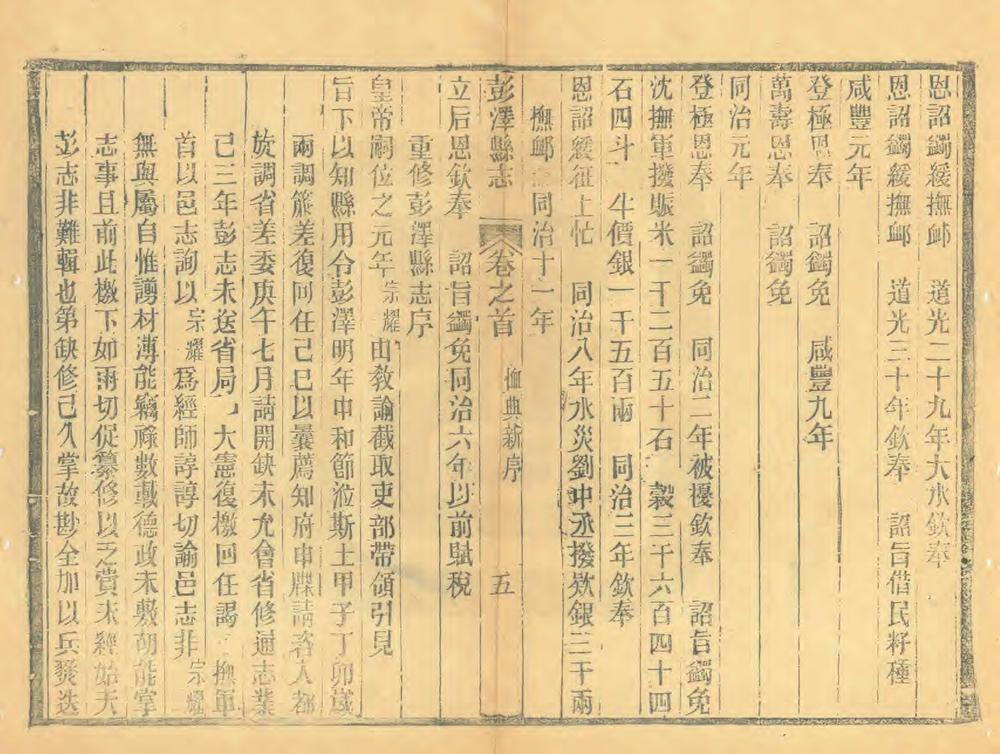 恩詔蠲緩撫䘏　道光二十九年大水欽奉
恩詔蠲緩撫䘏　道光三十年欽奉　詔旨借民籽種
咸豐元年
登極恩奉　詔蠲免　咸豐九年
萬壽恩奉　詔蠲免
同治元年
登極恩奉　詔蠲免　同治二年被擾欽奉　詔旨蠲免
沈撫軍撥賑米一千二百五十石　穀三千六百四十四
石四斗　牛價銀一千五百兩　同治三年欽奉
恩詔緩征上忙　同治八年水災劉中丞撥欵銀三千兩
撫䘏　同治十一年
彭澤縣志　卷之首　恤典新序　五
立后恩欽奉　詔旨蠲免同治六年以前賦稅
重修彭澤縣志序
皇帝嗣位之元年宗耀由敎諭截取吏部帶領引見
旨下以知縣用令彭澤明年中和節涖斯土甲子丁卯歲
兩調簾差復回任己巳以曩薦知府申牒請咨入都
旋調省差委庚午七月請開缺未允會省修通志業
已三年彭志未送省局　大憲復檄回任謁　撫軍
首以邑志詢以宗耀爲經師諄諄切諭邑志非宗耀
無與屬自惟謭材溥能竊祿數載德政未敷胡能掌
志事且前此檄下如雨切促纂修以乏貲未經始夫
彭志非難輯也第缺修已久掌故尠全加以兵燹迭